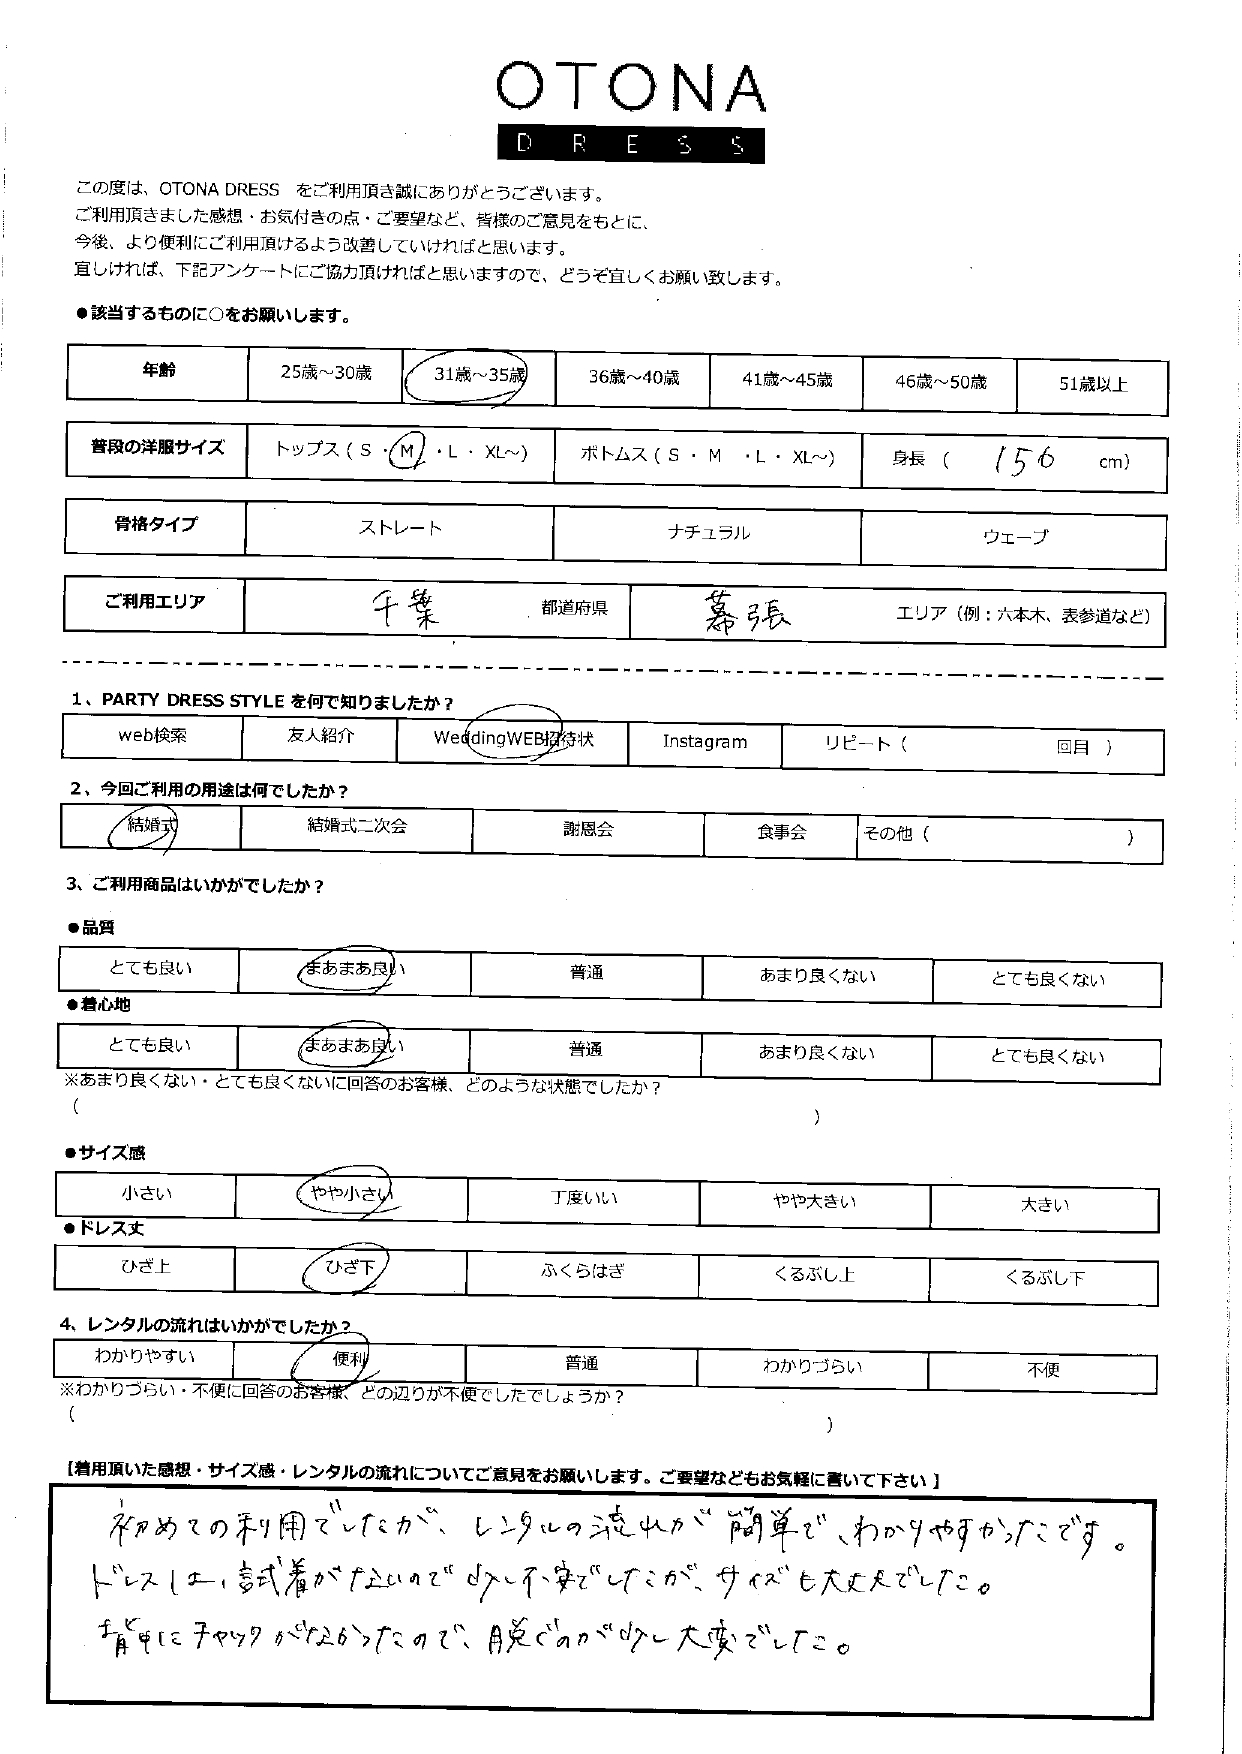 OTONA
DRESS
この度は、OTONA DRESS をご利用頂き誠にありがとうございます。
ご利用頂きました感想・お気付きの点・ご要望など、皆様のご意見をもとに、
今後、より便利にご利用頂けるよう改善していければと思います。
宜しければ、下記アンケートにご協力頂ければと思いますので、どうぞ宜しくお願い致します。
●該当するものに○をお願いします。
年齢 25歳～30歳 31歳～35歳 36歳～40歳 41歳～45歳 46歳～50歳 51歳以上
普段の洋服サイズ トップス ( S ・ M ・L ・ XL～) ボトムス ( S ・ M ・L ・ XL～) 身長 ( 156 cm)
骨格タイプ ストレート ナチュラル ウェーブ
ご利用エリア 千葉 都道府県 幕張 エリア（例：六本木、表参道など）
1、PARTY DRESS STYLE を何で知りましたか？
web検索 友人紹介 WeddingWEB招待状 Instagram リピート（ 回目 ）
2、今回ご利用の用途は何でしたか？
結婚式 結婚式二次会 謝恩会 食事会 その他（ ）
3、ご利用商品はいかがでしたか？
●品質
とても良い まあまあ良い 普通 あまり良くない とても良くない
●着心地
とても良い まあまあ良い 普通 あまり良くない とても良くない
※あまり良くない・とても良くないに回答のお客様、どのような状態でしたか？
( )
●サイズ感
小さい やや小さい 丁度いい やや大きい 大きい
●ドレス丈
ひざ上 ひざ下 ふくらはぎ くるぶし上 くるぶし下
4、レンタルの流れはいかがでしたか？
わかりやすい 便利 普通 わかりづらい 不便
※わかりづらい・不便に回答のお客様、どの辺りが不便でしたでしょうか？
( )
【着用頂いた感想・サイズ感・レンタルの流れについてご意見をお願いします。ご要望などもお気軽に書いて下さい】
初めての利用でしたが、レンタルの流れが簡単で、わかりやすかったです。
ドレスは、試着がないので少し不安でしたが、サイズも大丈夫でした。
背中にチャックがなかったので、脱ぐのが少し大変でした。